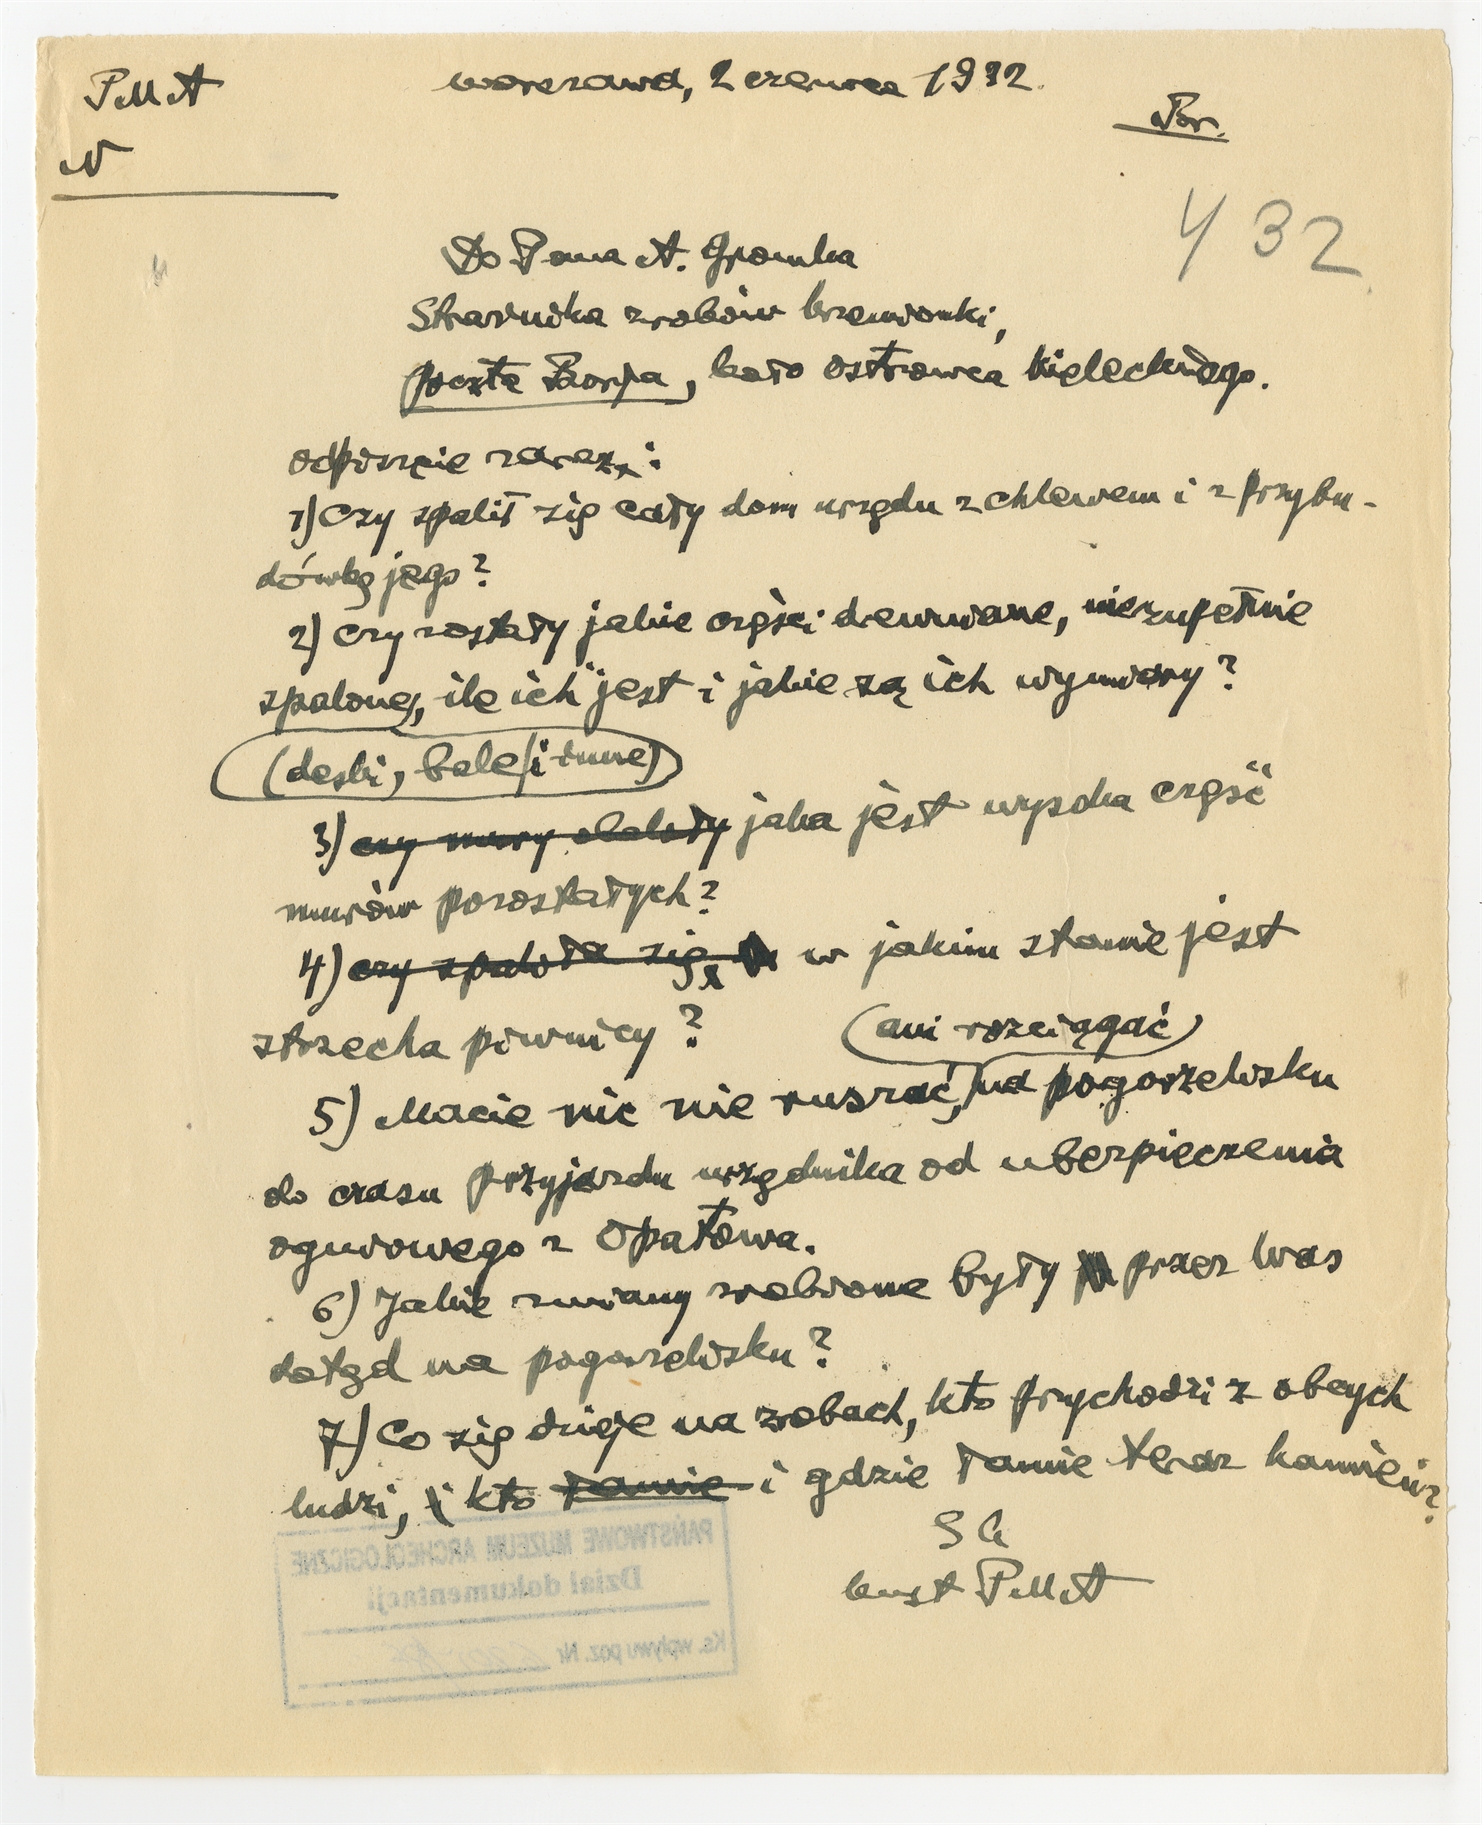 PMA
Warszawa, 2 czerwca 1932.
Br.
N
432
Do Pana A. Gromka
Strażnika zrobów Krzemionki,
poczta Borja, koło Ostrowca Kieleckiego.
Odpiszcie zaraz:
1) Czy spalił się cały dom urzędu z chlewem i z przybu-
dówką jego?
2) Czy zostały jakie części drewniane, niezupełnie
spalone, ile ich jest i jakie są ich wymiary?
(deski, bale i inne)
3) czy mury ocalały jaka jest wysoka część
murów pozostałych?
4) czy spaliła się, w jakim stanie jest
strzecha piwnicy?
(ani rozciągać)
5) Macie nic nie ruszać, na pogorzelisku
do czasu przyjazdu urzędnika od ubezpieczenia
ogniowego z Opatowa.
6) Jakie zmiany zrobione były przez Was
dotąd na pogorzelisku?
7) Co się dzieje na zrobach, kto przychodzi z obcych
ludzi, i kto łamie i gdzie łamie teraz kamień?
SG
kust PMA
PAŃSTWOWE MUZEUM ARCHEOLOGICZNE
Dział dokumentacji
Ks. wpływu poz. Nr